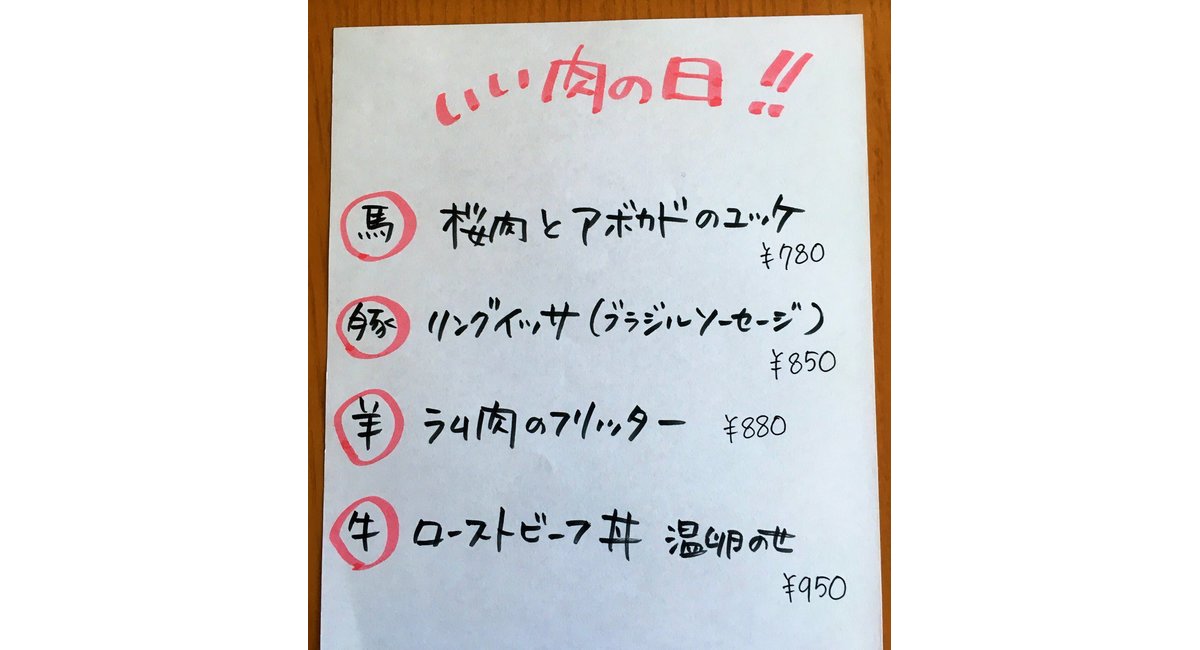 いい肉の日!!
馬 桜肉とアボカドのユッケ
¥780
豚 リングイッサ(ブラジルソーセージ)
¥850
羊 ラム肉のフリッター ¥880
牛 ローストビーフ丼 温卵のせ
¥950